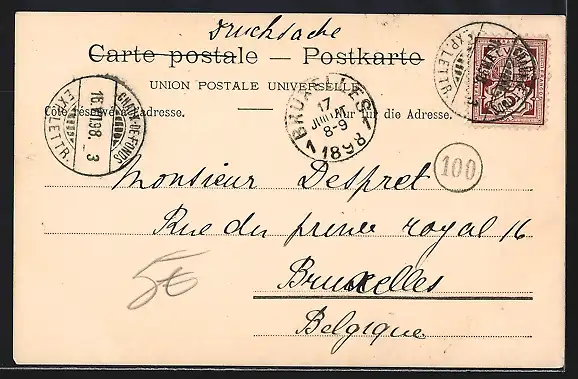 Drucksache
Carte postale — Postkarte
UNION POSTALE UNIVERSELLE
Côté réservé à l'adresse. Nur für die Adresse.
CHAUX-DE-FONDS
16.VII.98. 3
EXP. LETTR.
BRUXELLES 1
17
JUILLET
8-9
1898
EXP. LETTR.
100
Monsieur Despret
Rue du prince royal 16
Bruxelles
Belgique
5€